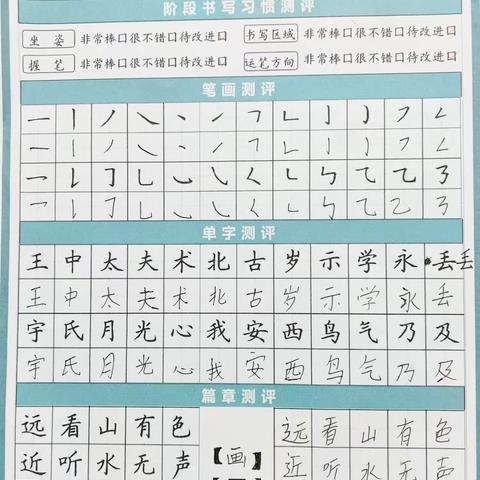 阶段书写习惯测评
坐姿 非常棒口很不错口待改进口 书写区域 非常棒口很不错口待改进口
握笔 非常棒口很不错口待改进口 运笔方向 非常棒口很不错口待改进口
笔画测评
单字测评
王 中 太 夫 术 北 古 岁 示 学 永 丢丢
王 中 太 夫 术 北 古 岁 示 学 永 丢
宇 氏 月 光 心 我 安 西 鸟 气 乃 及
宇 氏 月 光 心 我 安 西 鸟 气 乃 及
篇章测评
远 看 山 有 色 【画】 远 看 山 有 色
近 听 水 无 声 近 听 水 无 声